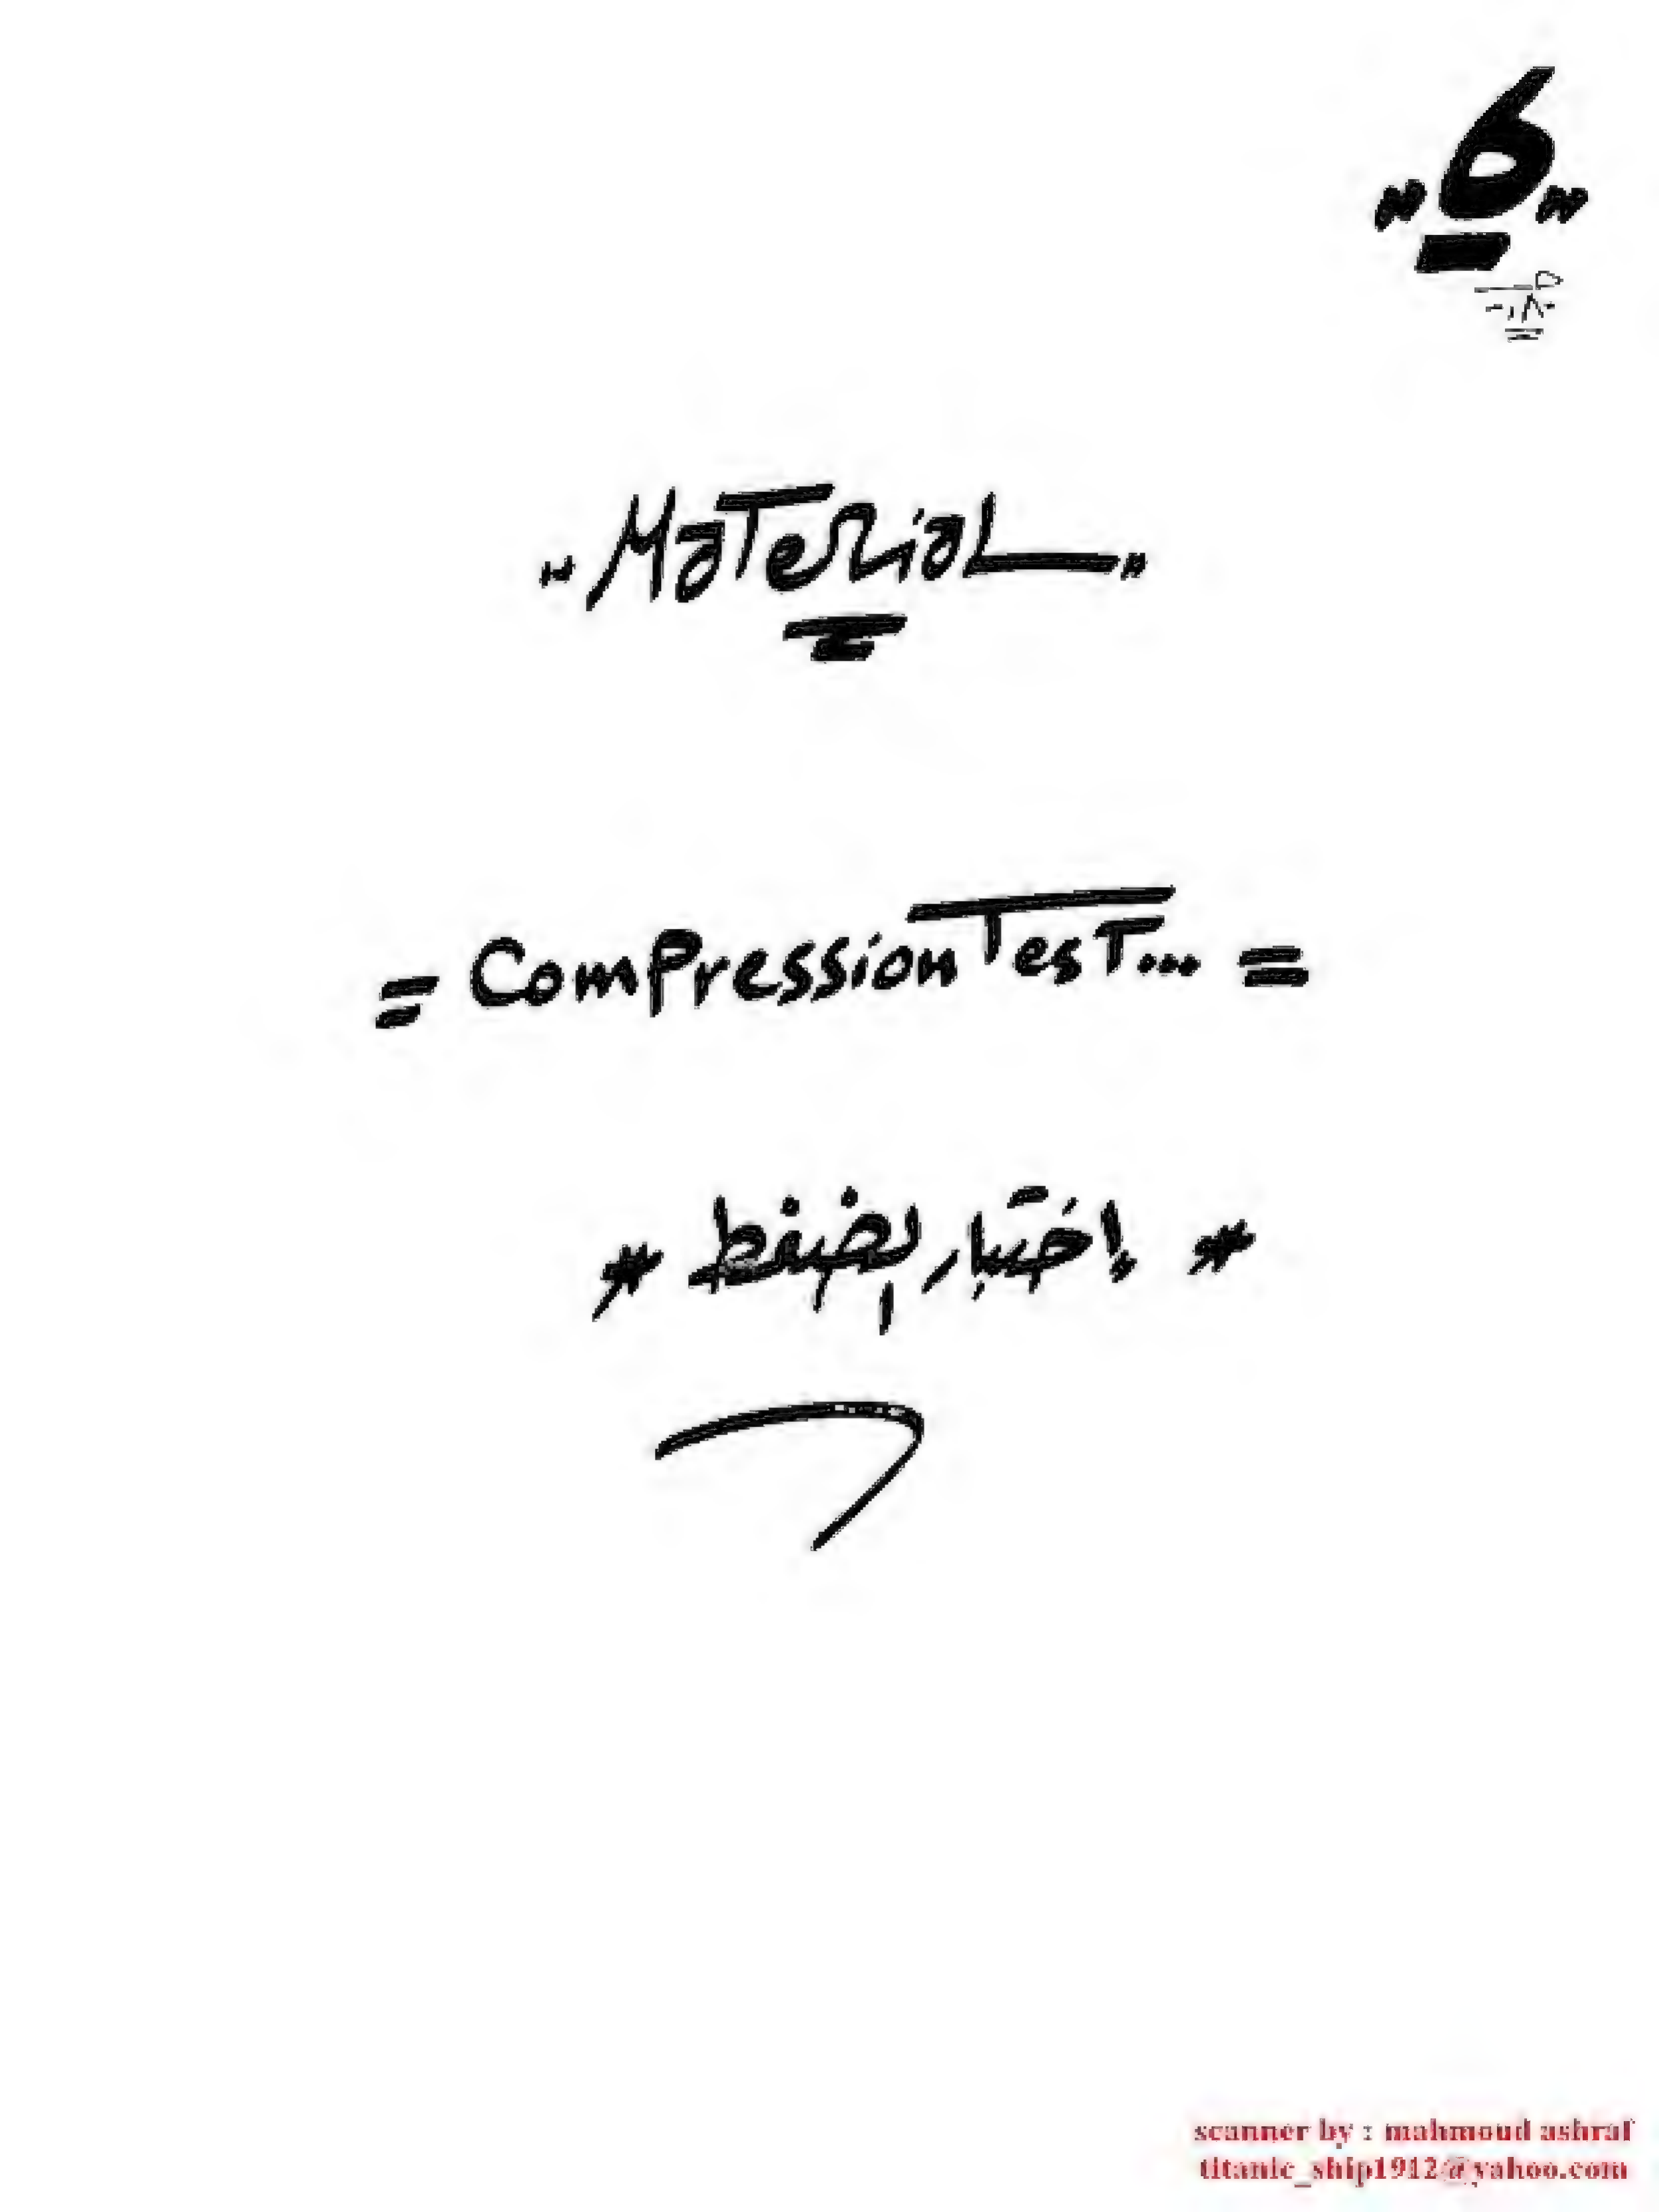 "6"
"Material"
= Compression Test... =
* إختبار الضغط *
scanner by : mahmoud ashraf
titanic_ship1912@yahoo.com